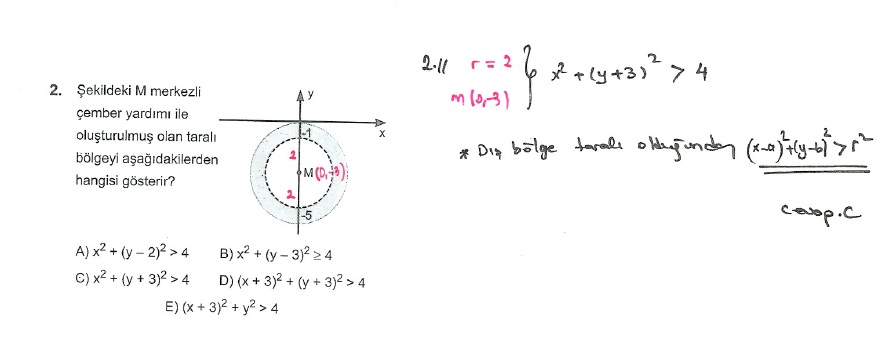 2. Şekildeki M merkezli
çember yardımı ile
oluşturulmuş olan taralı
bölgeyi aşağıdakilerden
hangisi gösterir?
y
x
-1
2
M(0,-3)
2
-5
A) x² + (y – 2)² > 4 B) x² + (y – 3)² ≥ 4
C) x² + (y + 3)² > 4 D) (x + 3)² + (y + 3)² > 4
E) (x + 3)² + y² > 4
2-11 r = 2 } x² + (y+3)² > 4
m(0,-3)
* Dış bölge taralı olduğundan (x-a)²+(y-b)² > r²
cevap.C